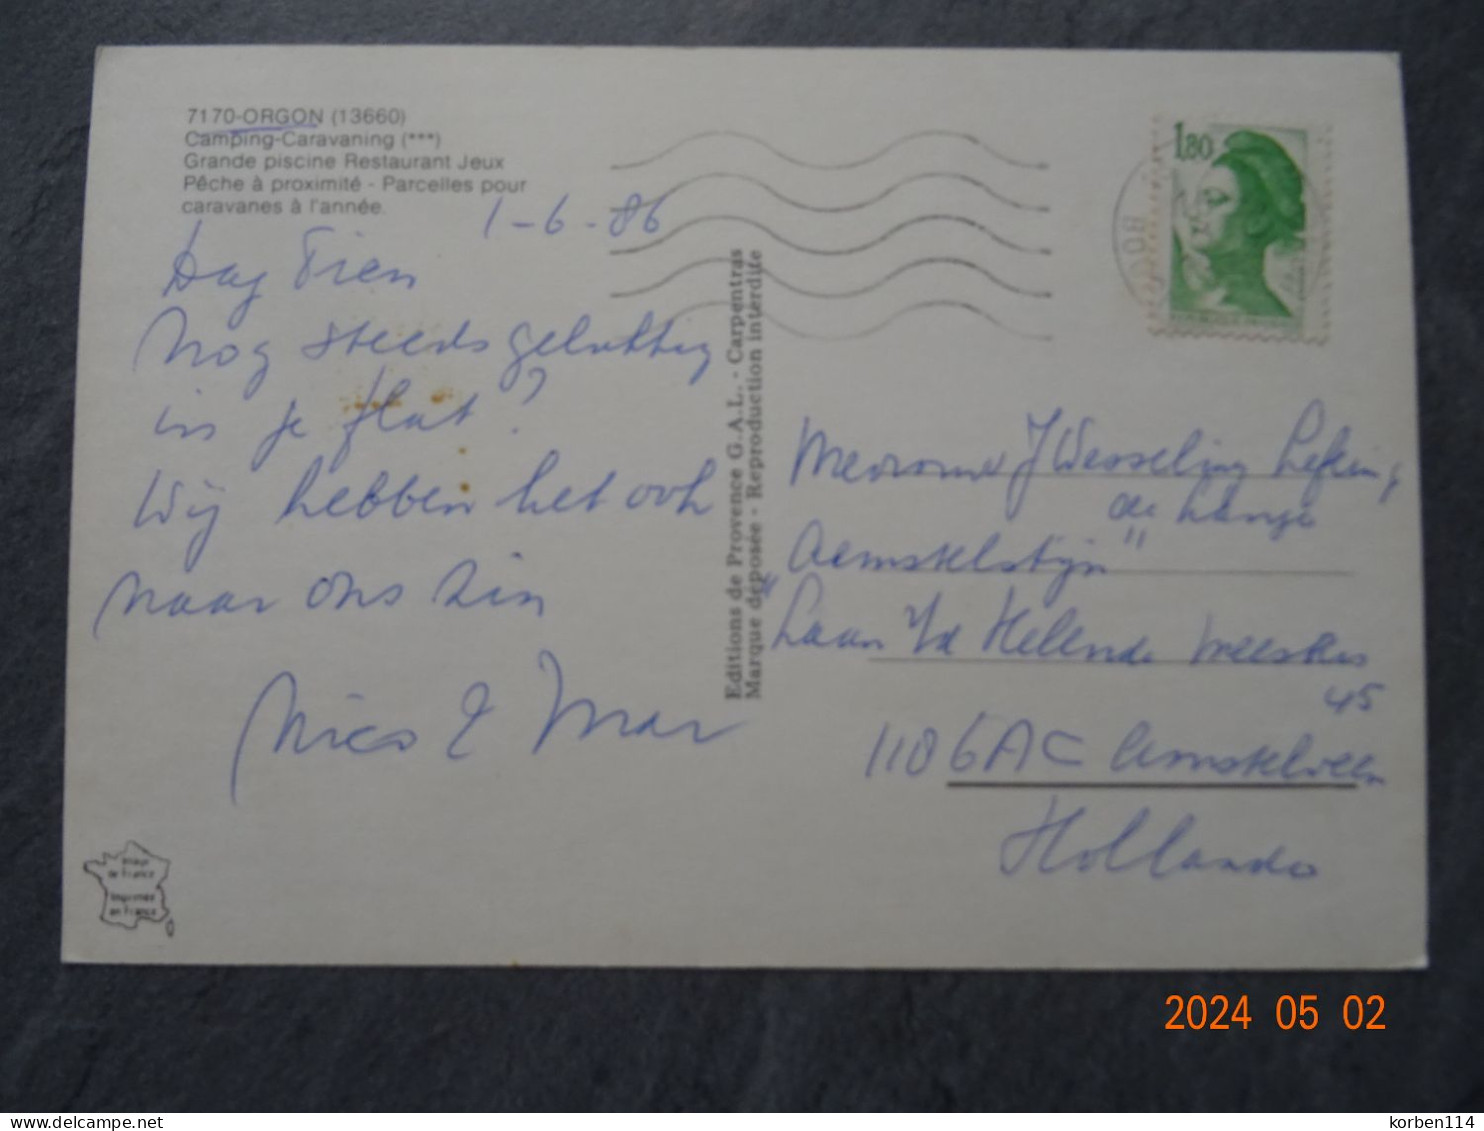 7170-ORGON (13660)
Camping-Caravaning (***)
Grande piscine Restaurant Jeux
Pêche à proximité - Parcelles pour
caravanes à l'année.
1-6-86
Dag Tien
Nog steeds gelukkig
in je flat?
Wij hebben het ook
naar ons zin
Nico & Mar
Editions de Provence G.A.L. - Carpentras
Marque déposée - Reproduction interdite
1,80
J Wesseling
de Lange
"
Laan Helende Meesters
45
1186AC Amstelveen
Hollande
Image
de France
Imprimée
en France
2024 05 02
delcampe.net
korben114